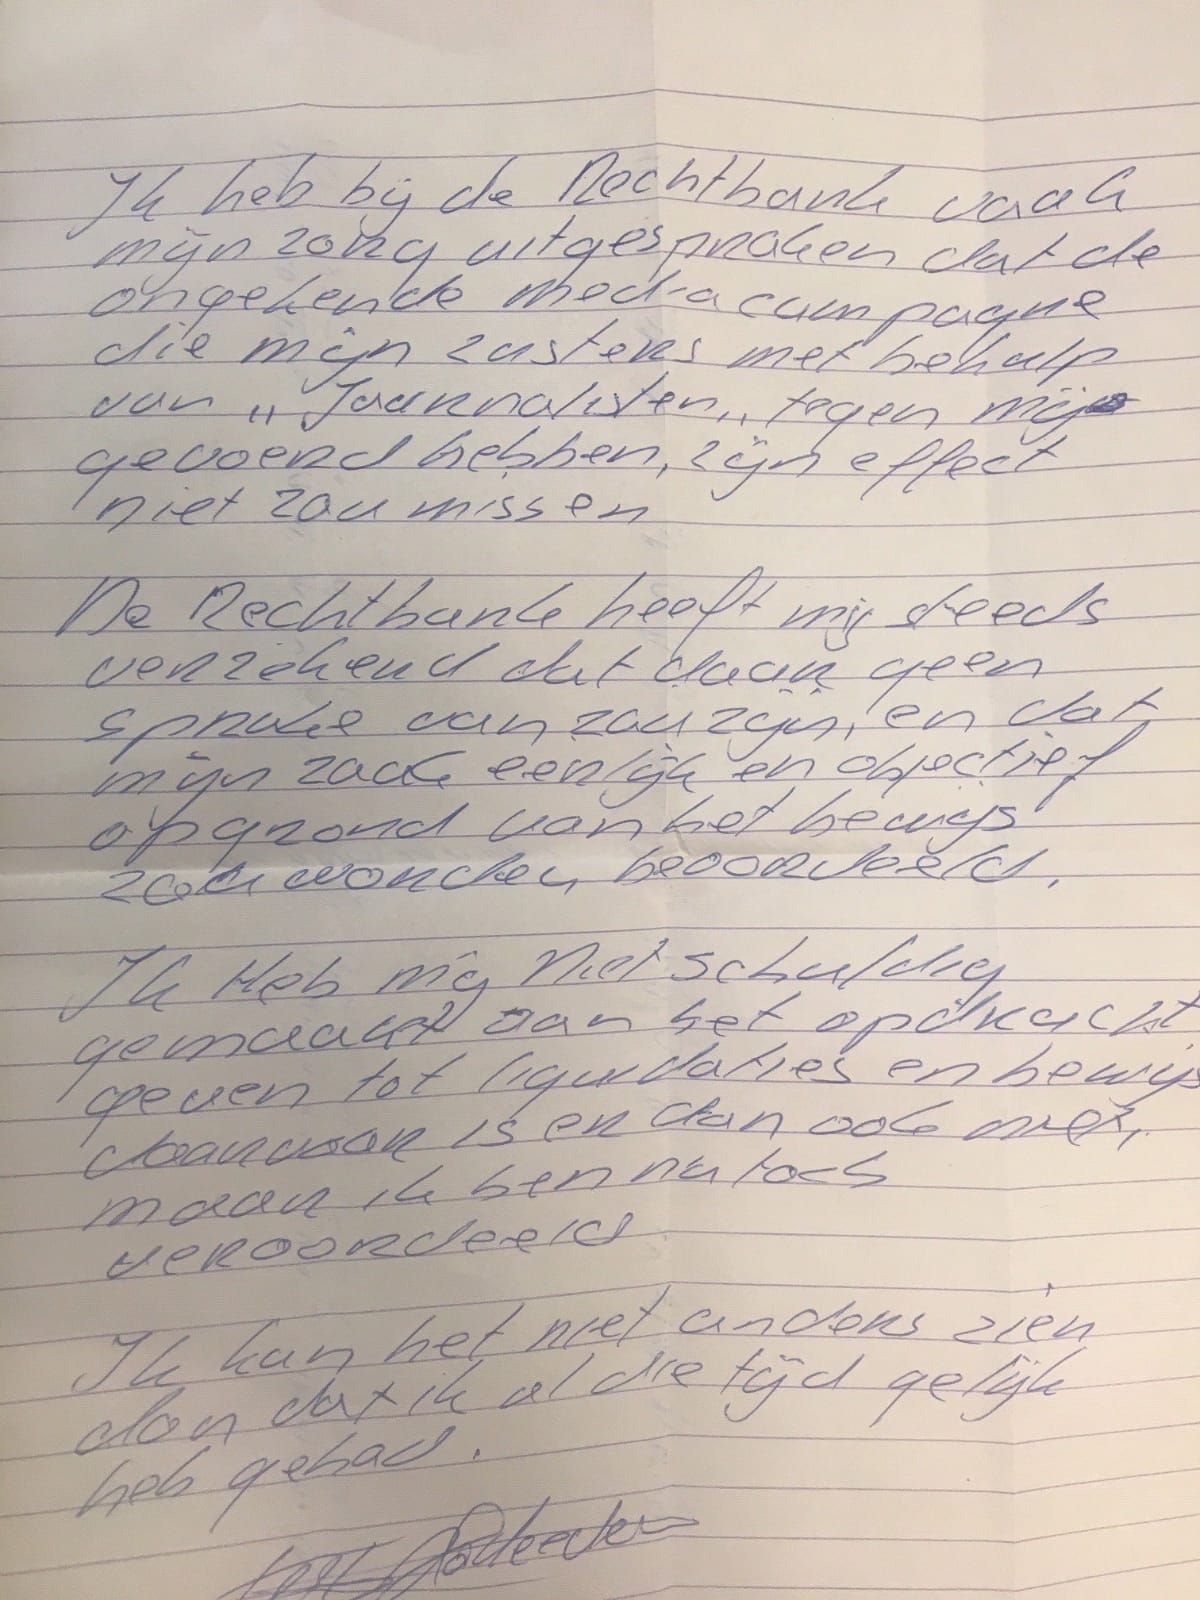 Ik heb bij de Rechtbank vaak
mijn zorg uitgesproken dat de
ongekende media campagne
die mijn zusters met behulp
van „Journalisten„ tegen mij
gevoerd hebben, zijn effect
niet zou missen
De Rechtbank heeft mij steeds
verzekerd dat daar geen
sprake van zou zijn, en dat
mijn zaak eerlijk en objectief
op grond van het bewijs
zou worden beoordeeld.
Ik Heb mij Niet schuldig
gemaakt aan het opdracht
geven tot liquidaties en bewijs
daarvoor is er dan ook niet,
maar ik ben nu toch
veroordeeld
Ik kan het niet anders zien
dan dat ik al die tijd gelijk
heb gehad.